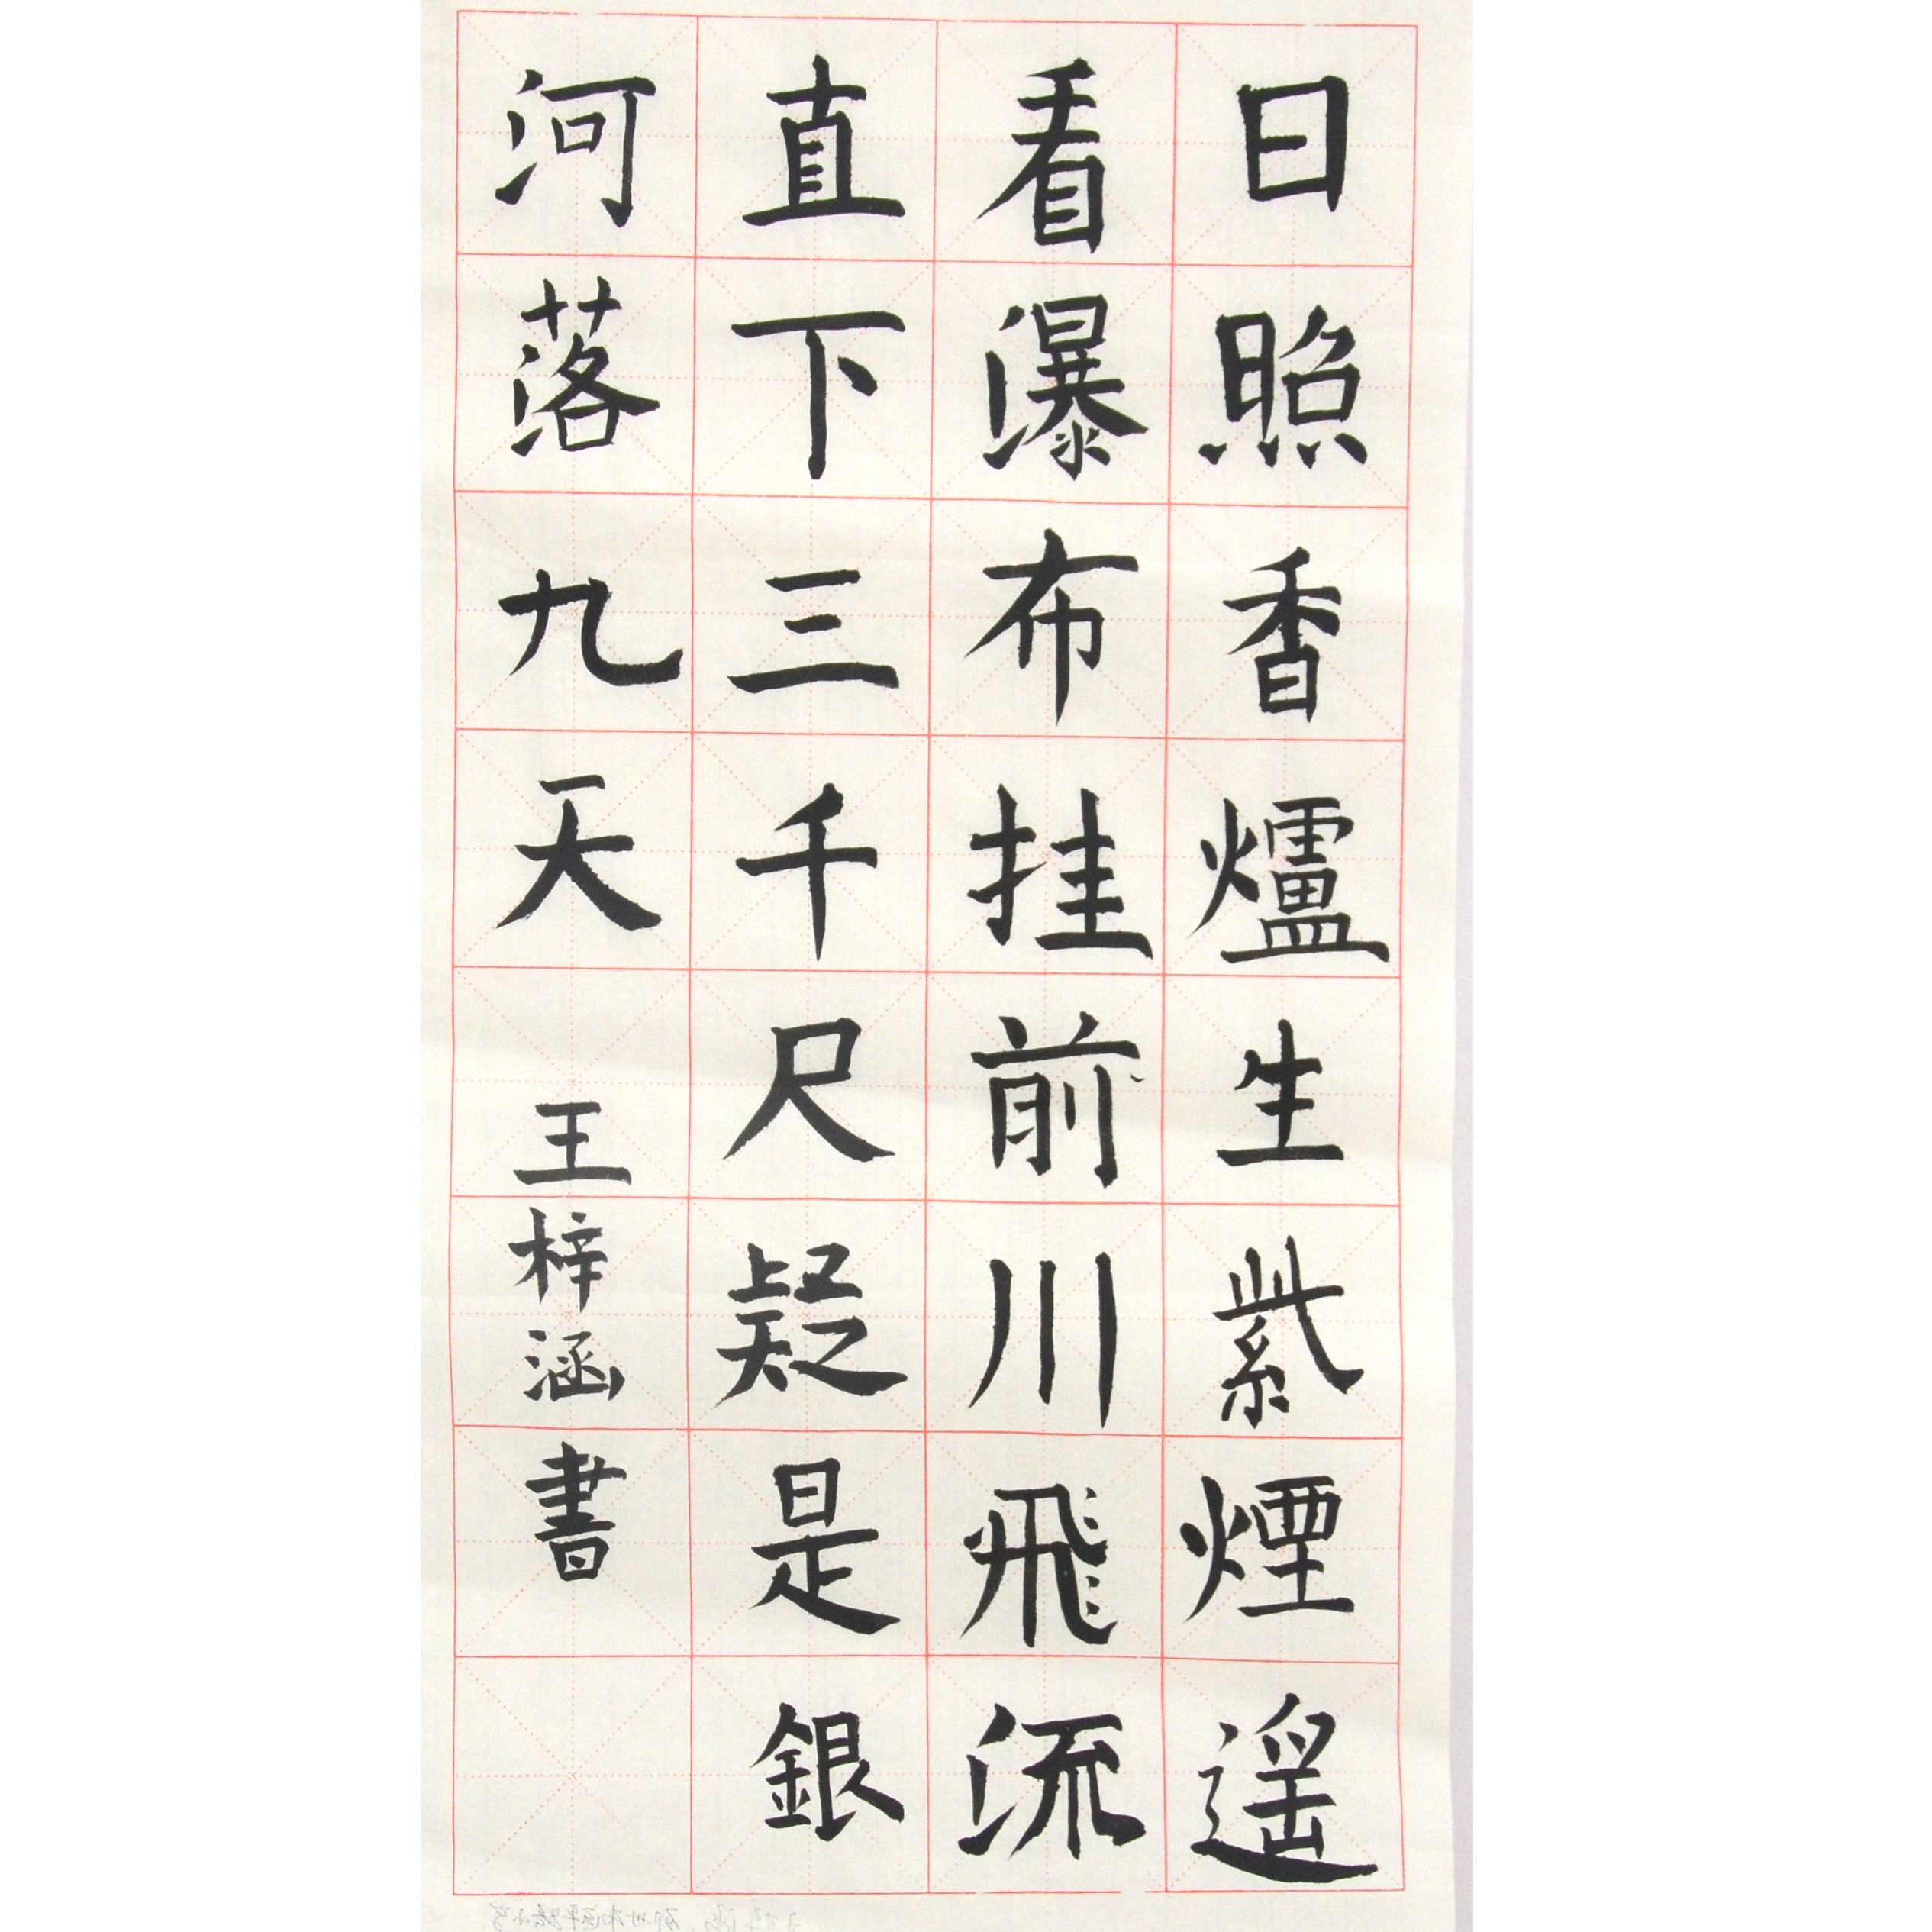 日照香爐生紫煙遥
看瀑布挂前川飛流
直下三千尺疑是銀
河落九天 王梓涵書